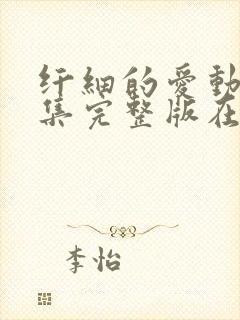 纤細的愛動
集完整版在
李怡